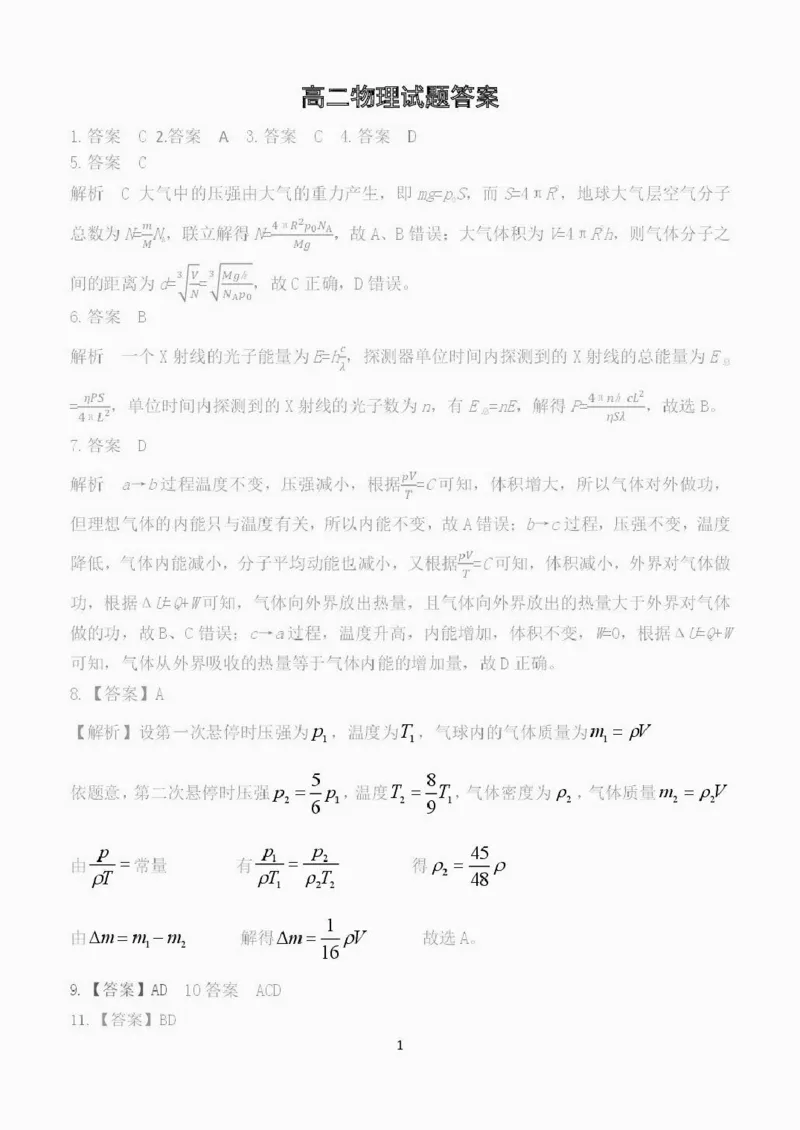 高二物理试题答案
1.答案 C 2.答案 A 3.答案 C 4.答案 D
5.答案 C
解析 C 大气中的压强由大气的重力产生，即 mg=p₀S，而 S=4πR²，地球大气层空气分子
总数为 N=m/M N_A，联立解得 N=4πR²p₀N_A/Mg，故 A、B 错误；大气体积为 V=4πR²h，则气体分子之
间的距离为 d=∛(V/N)=∛(Mgh/N_Ap₀)，故 C 正确，D 错误。
6.答案 B
解析 一个 X 射线的光子能量为 E=h c/λ，探测器单位时间内探测到的 X 射线的总能量为 E总
=ηPS/4πL²，单位时间内探测到的 X 射线的光子数为 n，有 E总=nE，解得 P=4πnhcL²/ηSλ，故选 B。
7.答案 D
解析 a→b 过程温度不变，压强减小，根据pV/T=C 可知，体积增大，所以气体对外做功，
但理想气体的内能只与温度有关，所以内能不变，故 A 错误；b→c 过程，压强不变，温度
降低，气体内能减小，分子平均动能也减小，又根据pV/T=C 可知，体积减小，外界对气体做
功，根据 ΔU=Q+W 可知，气体向外界放出热量，且气体向外界放出的热量大于外界对气体
做的功，故 B、C 错误；c→a 过程，温度升高，内能增加，体积不变，W=0，根据 ΔU=Q+W
可知，气体从外界吸收的热量等于气体内能的增加量，故 D 正确。
8.【答案】A
【解析】设第一次悬停时压强为p₁，温度为T₁，气球内的气体质量为m₁ = ρV
依题意，第二次悬停时压强p₂ = 5/6 p₁，温度T₂ = 8/9 T₁，气体密度为 ρ₂，气体质量m₂ = ρ₂V
由 p/ρT = 常量 有 p₁/ρT₁ = p₂/ρ₂T₂ 得 ρ₂ = 45/48 ρ
由Δm = m₁ − m₂ 解得Δm = 1/16 ρV 故选 A。
9.【答案】AD 10 答案 ACD
11.【答案】BD
1